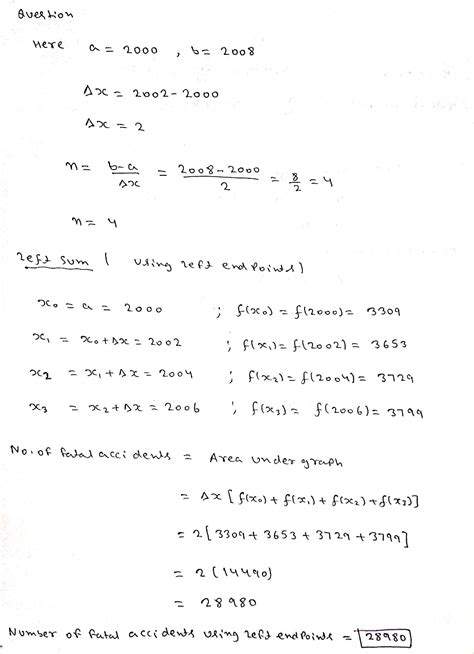 Question
Here a = 2000 , b = 2008
Δx = 2002 - 2000
Δx = 2
n = b-a/Δx = 2008-2000/2 = 8/2 = 4
n = 4
Left sum ( using left end Points )
x₀ = a = 2000 ; f(x₀) = f(2000) = 3309
x₁ = x₀+Δx = 2002 ; f(x₁) = f(2002) = 3653
x₂ = x₁+Δx = 2004 ; f(x₂) = f(2004) = 3729
x₃ = x₂+Δx = 2006 ; f(x₃) = f(2006) = 3799
No. of fatal accidents = Area under graph
= Δx [ f(x₀) + f(x₁) + f(x₂) + f(x₃)]
= 2 [ 3309 + 3653 + 3729 + 3799]
= 2 (14490)
= 28980
Number of fatal accidents using left endPoints = 28980